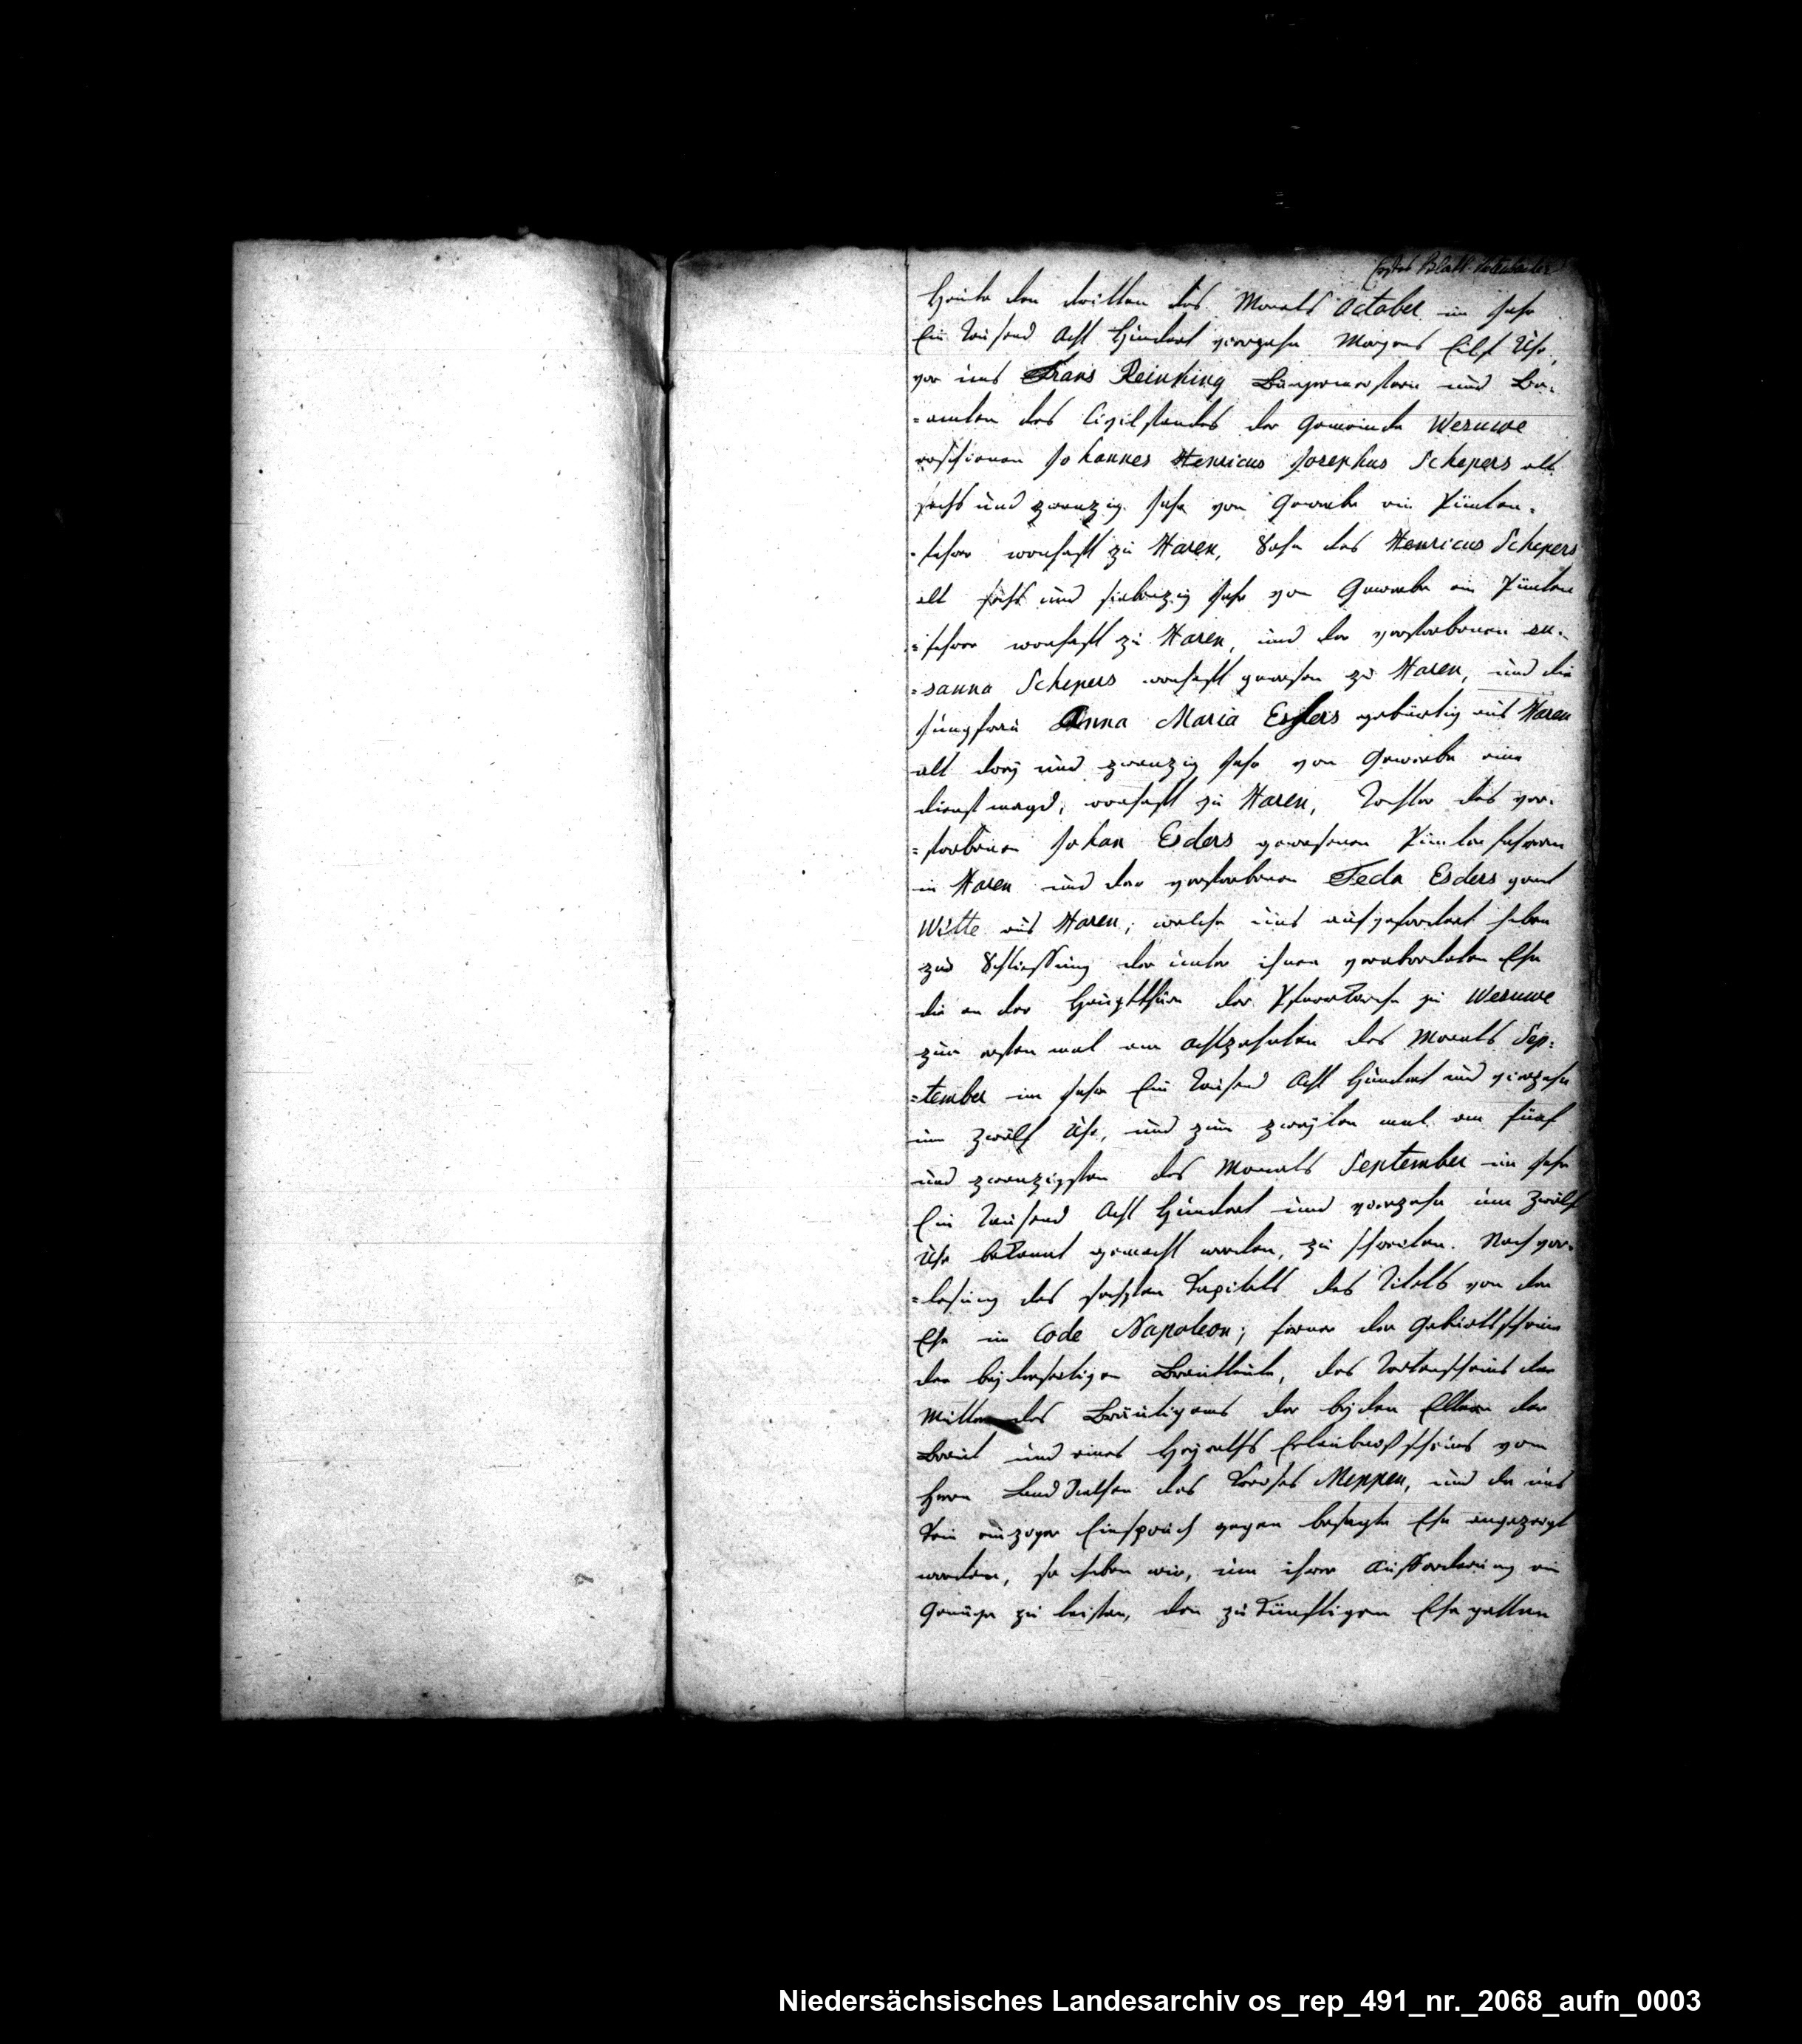 Erstes Blatt
Heute den dritten des Monats October im Jahr
Ein Tausend Acht Hundert vierzehn Morgens Eilf Uhr,
vor uns Frans Reinking Bürgermeistern und Be-
=amten des Civilstandes der Gemeinde Wesuwe
erschienen Johannes Henricus Josephus Schepers alt
sechs und zwanzig Jahr von Gewerbe ein Pünten-
=fehrer wonhaft zu Haren, Sohn des Henricus Schepers
alt sechs und siebenzig Jahr von Gewerbe ein Pünten
=fehrer wonhaft zu Haren, und der verstorbenen su-
=sanna Schepers wonhaft gewesen zu Haren, und die
Jungfrau Anna Maria Esders gebürtig aus Haren
alt drey und zwanzig Jahr von Gewerbe eine
dienstmagd, wonhaft zu Haren, Tochter des ver-
=storbenen Johan Esders gewesenen Püntenfehrern
in Haren und der verstorbenen Feda Esders gent
Witte aus Haren; welche uns aufgefordert haben
zur Schliessung der unter ihnen verabredeten Ehe
die an der Hauptthüre der Pfarrkirche zu Wesuwe
zum ersten mal am achtzehnten des Monats Sep-
=tember im Jahr Ein Tausend Acht Hundert und vierzehn
um zwölf Uhr, und zum zweyten mal am fünf
und zwanzigsten des Monats September im Jahr
Ein Tausend Acht Hundert und vierzehn um zwölf
Uhr bekannt gemacht worden, zu schreiten. Nach vor-
=lesung des sechsten Kapitels des Titels von der
Ehe im Code Napoleon; ferner der Geburtsscheine
der beyderseitigen Brautleute, des Todtenscheins der
Mutter des Bräutigams der beyden Eltern der
Braut und eines Heyraths Erlaubnißscheins vom
Herrn des Kreises Meppen, und da uns
kein einziger Einspruch gegen besagte Ehe angezeigt
worden, so haben wir, um ihrer Aufforderung ein
Genüge zu leisten, den zukünftigen Ehegatten
Niedersächsisches Landesarchiv os_rep_491_nr._2068_aufn_0003